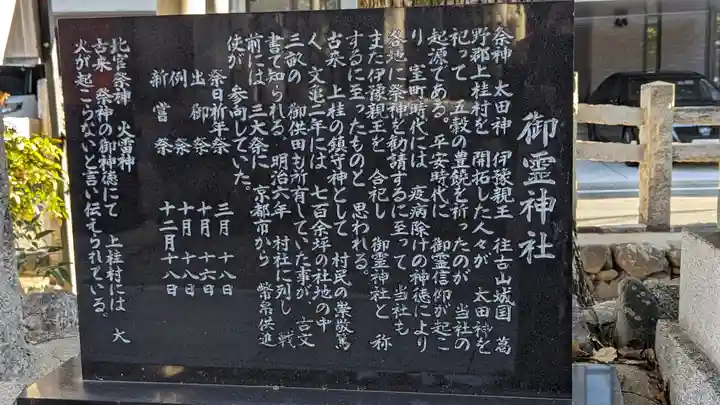 御霊神社
祭神 太田神 伊豫親王 往古山城国 葛
野郡上桂村を 開拓した人々が 太田神を
祀って 五穀の豊饒を祈ったのが 当社の
起源である。平安時代に 御霊信仰が起こ
り 室町時代には 疫病除けの神徳により
各地に祭神を勧請するに至って 当社も
また伊豫親王を 合祀し 御霊神社と 称
するに至ったものと 思われる。
古来 上桂の鎮守神として 村民の崇敬篤
く、文亀二年には 七百余坪の社地の中
三畝の 御供田も所有していた事が 古文
書で知られる。明治六年 村社に列し 戦
前には 三大祭に 京都市から 幣帛供進
使が 参向していた。
祭日祈年祭 三月 十八日
出御祭 十月 十六日
例祭 十月 十八日
新嘗祭 十二月十八日
北官祭神 火雷神
古来 祭神の御神徳にて 上桂村には 大
火が起こらないと言い伝えられている。